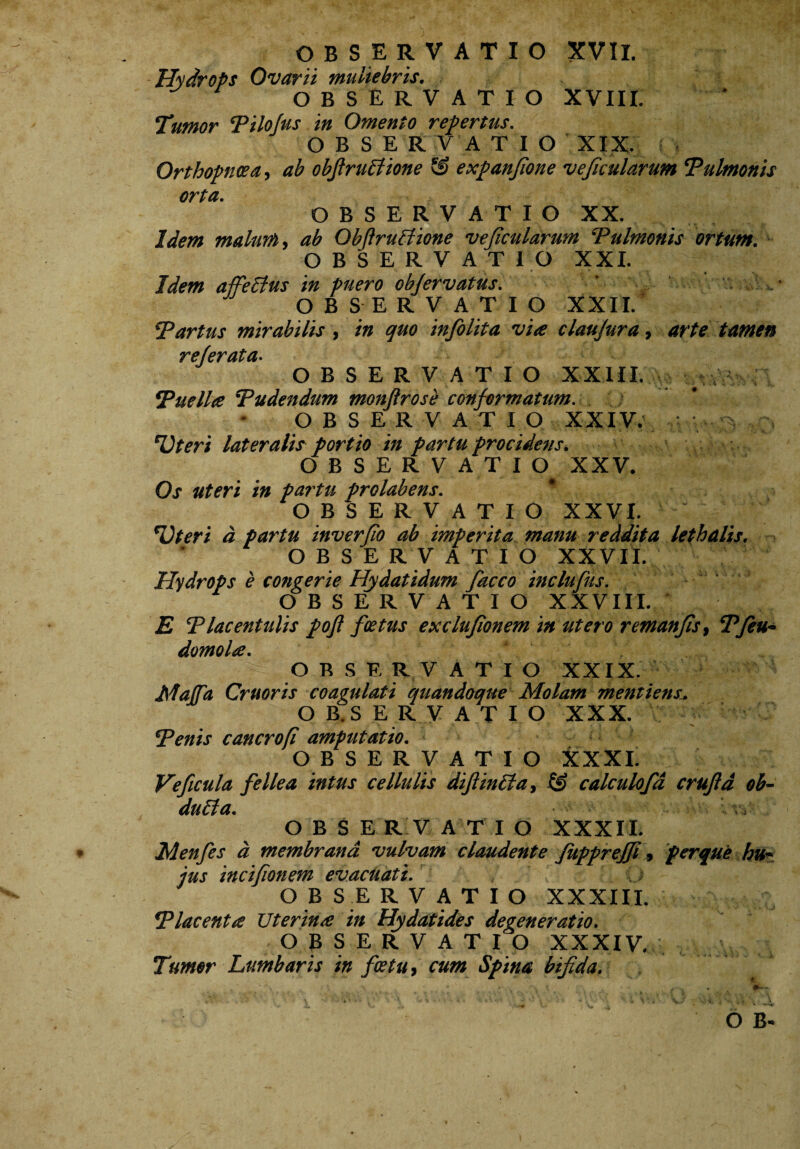 OBSERVATIO XVII.
Hydrops Ovarii muliebris.
OBSERVATIO XVIII.
Tumor Pilosus in Omento repertus.
OBSERVATIO XIX.
Orthopnœa, ab obstructione & expansione vesicularum Pulmonis
orta.
OBSERVATIO XX.
Idem malum, ab Obstructione vesicularum Pulmonis ortum.
OBSERVATIO XXI.
Idem affectus in puero observatus.
OBSERVATIO XXII.
Partus mirabilis, in quo insolita viæ clausura, arte tamen
reserata.
OBSERVATIO XXIII.
Puellæ Pudendum monstrosè conformatum.
OBSERVATIO XXIV.
Uteri lateralis portio in partu procidens.
OBSERVATIO XXV.
Os uteri in partu prolabens.
OBSERVATIO XXVI.
Uteri à partu inversio ab imperita manu reddita lethalis.
OBSERVATIO XXVII.
Hydrops è congerie Hydatidum sacco inclusus.
OBSERVATIO XXVIII.
E Placentulis post fœtus exclusionem in utero remansis, Pseu-
domolæ.
OBSERVATIO XXIX.
Massa Cruoris coagulati quandoque Molam mentiens.
OBSERVATIO XXX.
Penis cancrosi amputatio.
OBSERVATIO XXXI.
Vesicula fellea intus cellulis distincta, & calculosâ crustâ ob-
ducta.
OBSERVATIO XXXII.
Menses à membranâ vulvam claudente suppressi, perque hu-
jus incisionem evacuati.
OBSERVATIO XXXIII.
Placentæ Uterinæ in Hydatides degeneratio.
OBSERVATIO XXXIV.
Tumor Lumbaris in fœtu, cum Spina bifida.
OB-